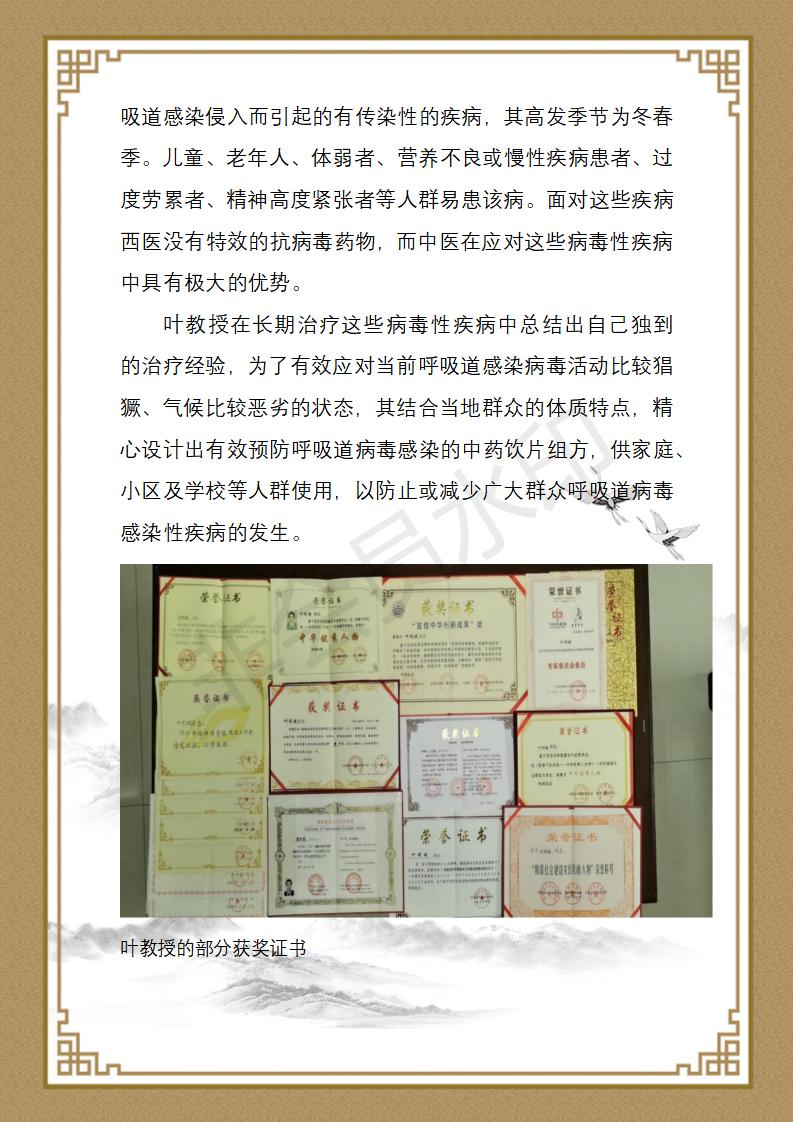 吸道感染侵入而引起的有传染性的疾病，其高发季节为冬春
季。儿童、老年人、体弱者、营养不良或慢性疾病患者、过
度劳累者、精神高度紧张者等人群易患该病。面对这些疾病
西医没有特效的抗病毒药物，而中医在应对这些病毒性疾病
中具有极大的优势。
叶教授在长期治疗这些病毒性疾病中总结出自己独到
的治疗经验，为了有效应对当前呼吸道感染病毒活动比较猖
獗、气候比较恶劣的状态，其结合当地群众的体质特点，精
心设计出有效预防呼吸道病毒感染的中药饮片组方，供家庭、
小区及学校等人群使用，以防止或减少广大群众呼吸道病毒
感染性疾病的发生。
非会员水印
荣誉证书
荣誉证书
中华优秀人物
获奖证书
"百佳中华创新成果"奖
荣誉证书
专家委员会委员
荣誉证书
荣誉证书
获奖证书
获奖证书
荣誉证书
荣誉证书
荣誉证书
叶教授的部分获奖证书